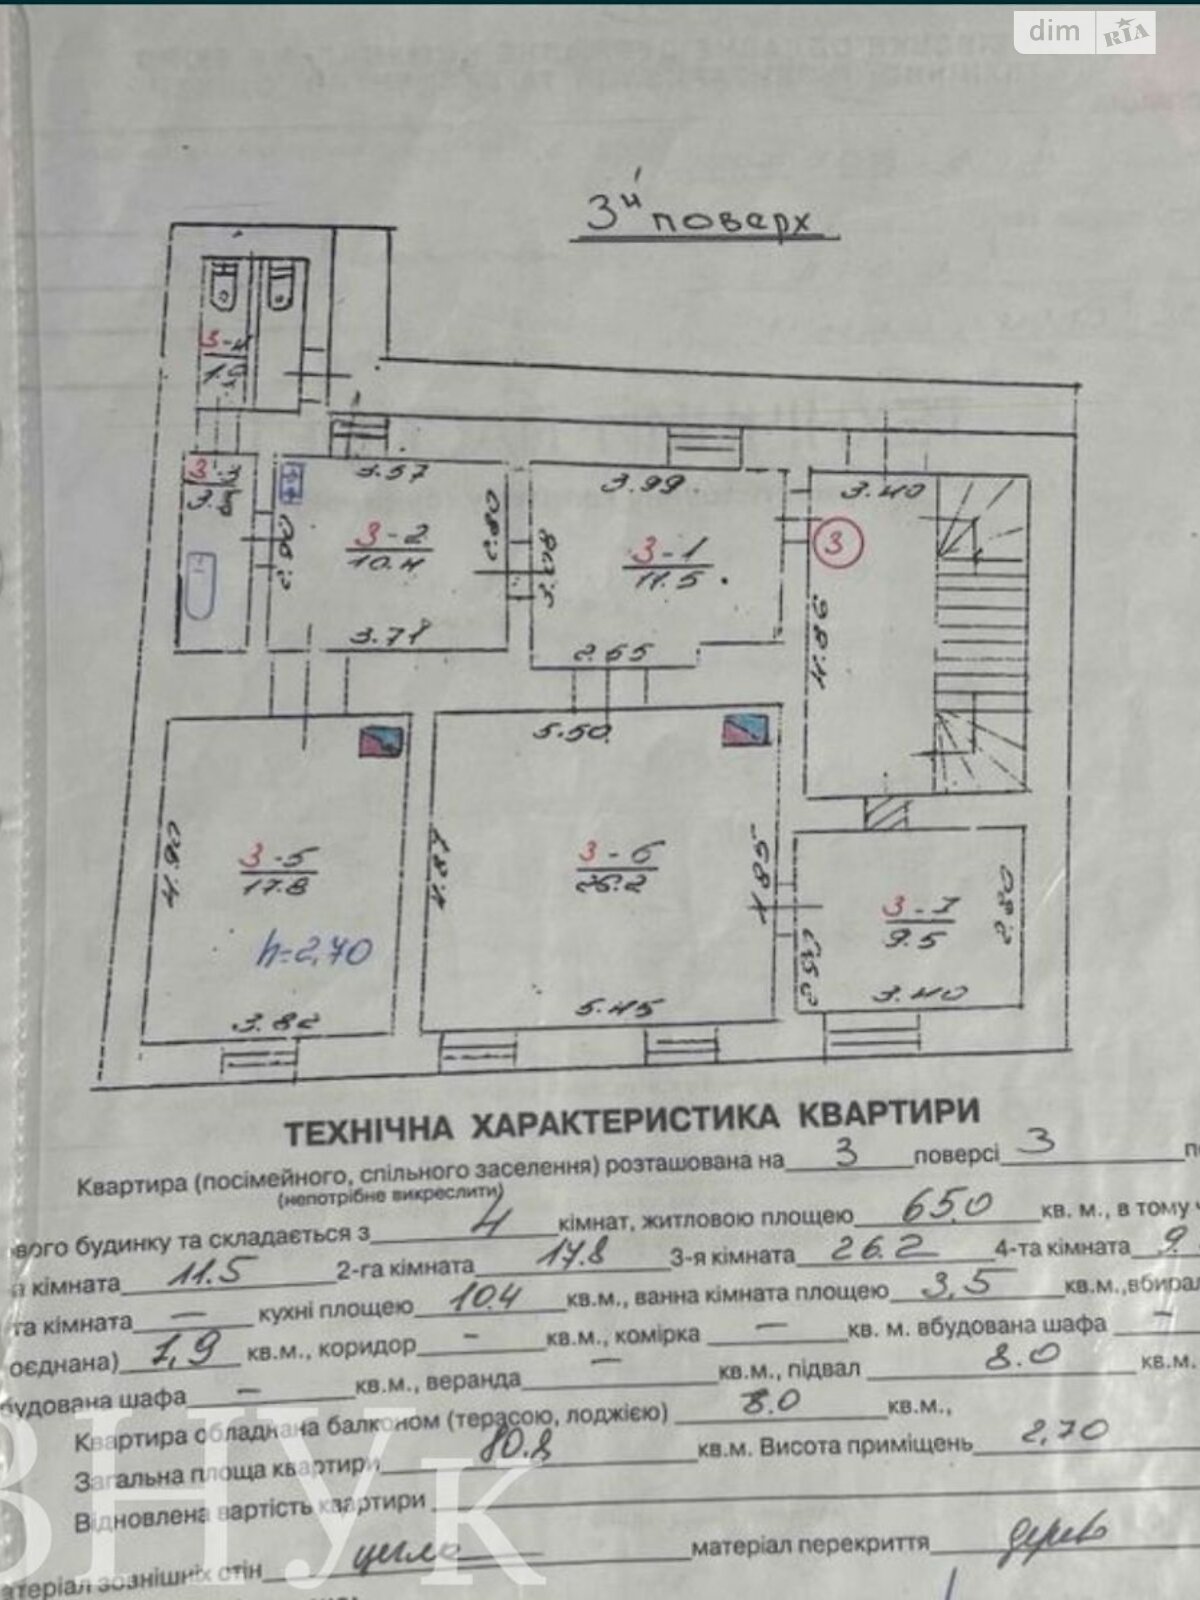 dim RIA
3й поверх
3-4
3-3
3.57
3.99
3.40
3-2
10.4
2.90
2.80
3.08
3-1
11.5
3
4.86
3.71
2.55
5.50
3-5
17.8
4.90
h=2,70
3.82
3-6
26.2
4.85
4.85
5.45
3-7
9.5
2.80
3.40
ТЕХНІЧНА ХАРАКТЕРИСТИКА КВАРТИРИ
Квартира (посімейного, спільного заселення) розташована на 3 поверсі 3
(непотрібне викреслити)
ового будинку та складається з 4 кімнат, житловою площею 65,0 кв. м., в тому
кімната 11.5 2-га кімната 17.8 3-я кімната 26.2 4-та кімната 9.
та кімната – кухні площею 10.4 кв.м., ванна кімната площею 3,5 кв.м.,вбирал
оєднана) 1,9 кв.м., коридор - кв.м., комірка – кв. м. вбудована шафа –
будована шафа – кв.м., веранда – кв.м., підвал 8.0 кв.м.
Квартира обладнана балконом (терасою, лоджією) 8.0 кв.м.,
Загальна площа квартири 80.8 кв.м. Висота приміщень 2,70
Відновлена вартість квартири
атеріал зовнішніх стін цегла матеріал перекриття дерево
ВНУК